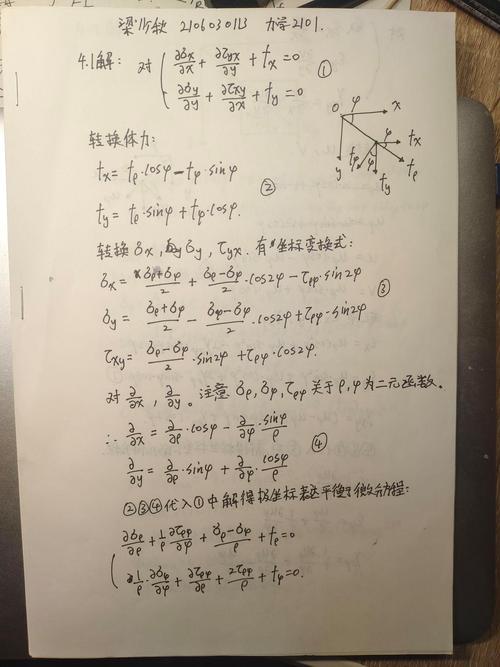 梁 2106030113 力学2101.
4.1解: 对 { ∂σx/∂x + ∂τyx/∂y + fx = 0
∂σy/∂y + ∂τxy/∂x + fy = 0 ①
O φ x
φ fx
fφ φ fρ
y fy
转换体力:
fx = fρ·cosφ - fφ·sinφ
②
fy = fρ·sinφ + fφ·cosφ.
转换σx, σy, τyx. 有坐标变换式:
σx = (σρ+σφ)/2 + (σρ-σφ)/2·cos2φ - τρφ·sin2φ
③
σy = (σρ+σφ)/2 - (σρ-σφ)/2·cos2φ + τρφ·sin2φ
τxy = (σρ-σφ)/2·sin2φ + τρφ·cos2φ.
对 ∂/∂x, ∂/∂y。注意 σρ, σφ, τρφ 关于ρ, φ为二元函数。
∴ ∂/∂x = ∂/∂ρ·cosφ - ∂/∂φ·sinφ/ρ
④
∂/∂y = ∂/∂ρ·sinφ + ∂/∂φ·cosφ/ρ
②③④代入①中解得极坐标表达平衡微分方程:
{ ∂σρ/∂ρ + 1/ρ ∂τρφ/∂φ + (σρ-σφ)/ρ + fρ = 0
1/ρ·∂σφ/∂φ + ∂τρφ/∂ρ + 2τρφ/ρ + fφ = 0.